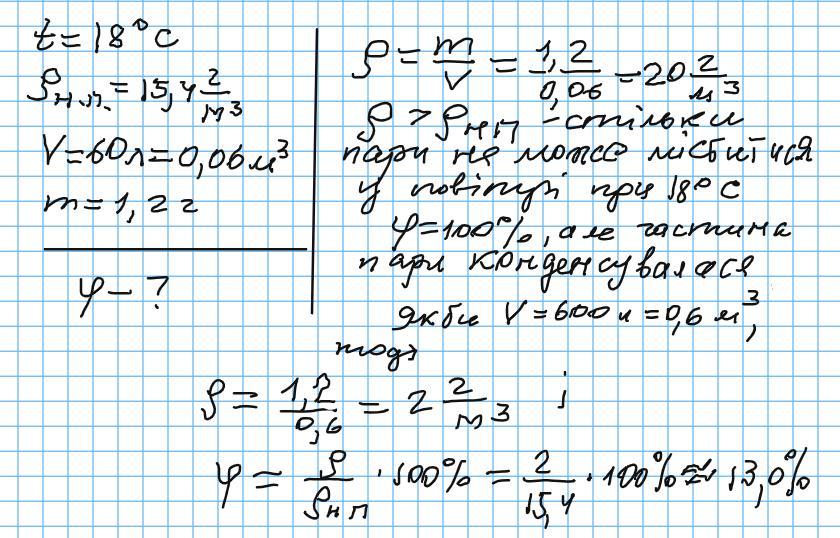 t = 18°C
ρн.п. = 15,4 г/м³
V = 60 л = 0,06 м³
m = 1,2 г
φ – ?
ρ = m/V = 1,2/0,06 = 20 г/м³
ρ > ρнп – стільки
пари не може міститися
у повітрі при 18°C
φ = 100%, але частина
пари конденсувалася
якби V = 600 л = 0,6 м³,
тоді
ρ = 1,2/0,6 = 2 г/м³ і
φ = ρ/ρнп · 100% = 2/15,4 · 100% ≈ 13,0%